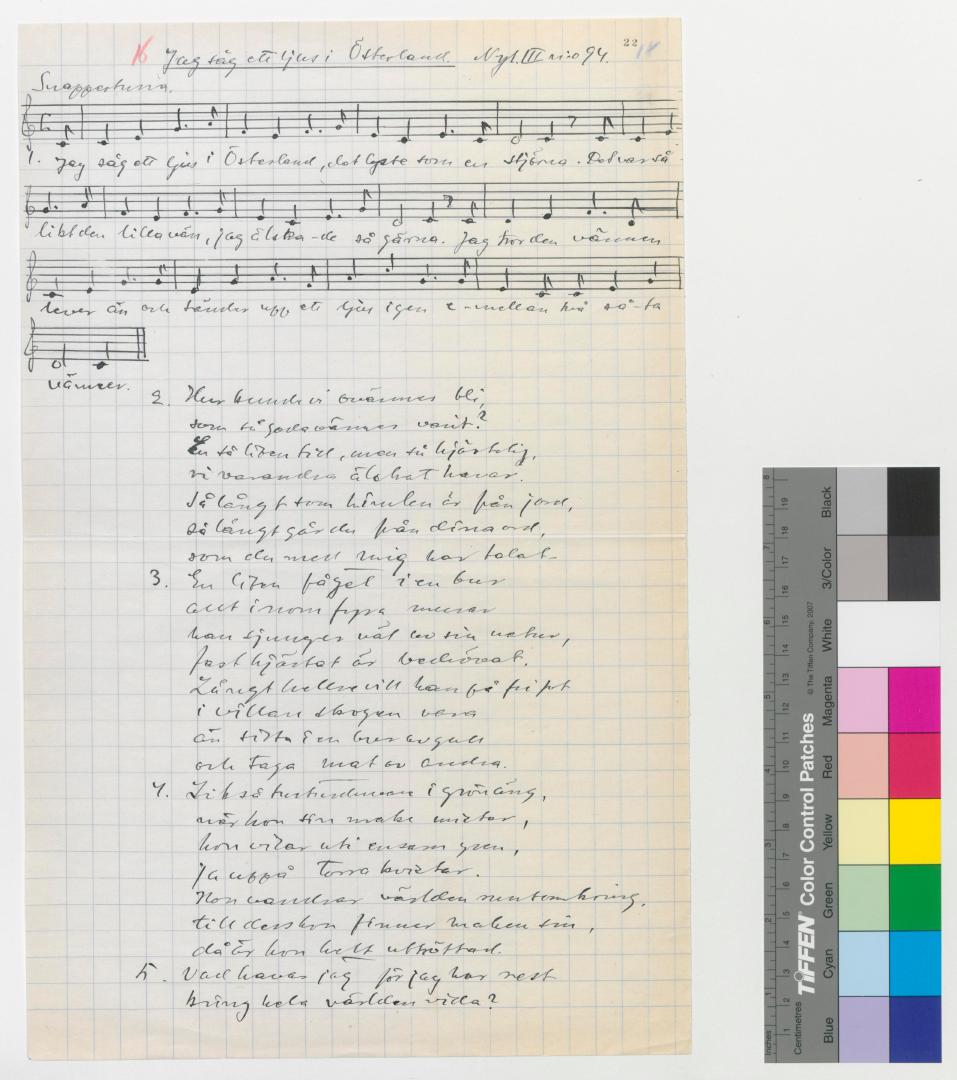 22 14
16 Jag såg ett ljus i Österland. Nyl. III n:o 94.
Snappertuna.
1. Jag såg ett ljus i Österland, det lyste som en stjärna. Det var så
likt den lilla vän, jag älska-de så gärna. Jag tror den vännen
lever än och tänder upp ett ljus igen e-mellan två så-ta
vänner.
2. Hur kunde vi ovänner bli,
som så goda vänner varit?
En så liten tid, men så hjärtelig,
vi varandra älskat havar.
Så långt som himlen är från jord,
så långt går du från dina ord,
som du med mig har talat.
3. En liten fågel i en bur
allt inom fyra murar
han sjunger väl av sin natur,
fast hjärtat är bedrövat.
Långt hellre vill han på fri fot
i villan skogen vara
än sitta i en bur av gull
och taga mat av andra.
4. Likså turturduvan i grön äng,
när hon sin make mister,
hon vilar uti ensam gren,
ja uppå torra kvistar.
Hon vandrar världen runtomkring,
till dess hon finner maken sin,
då är hon helt uttröttad.
5. Vad havar jag för jag har rest
kring hela världen vida?
Inches
Centimetres
TIFFEN Color Control Patches
© The Tiffen Company, 2007
Blue
Cyan
Green
Yellow
Red
Magenta
White
3/Color
Black